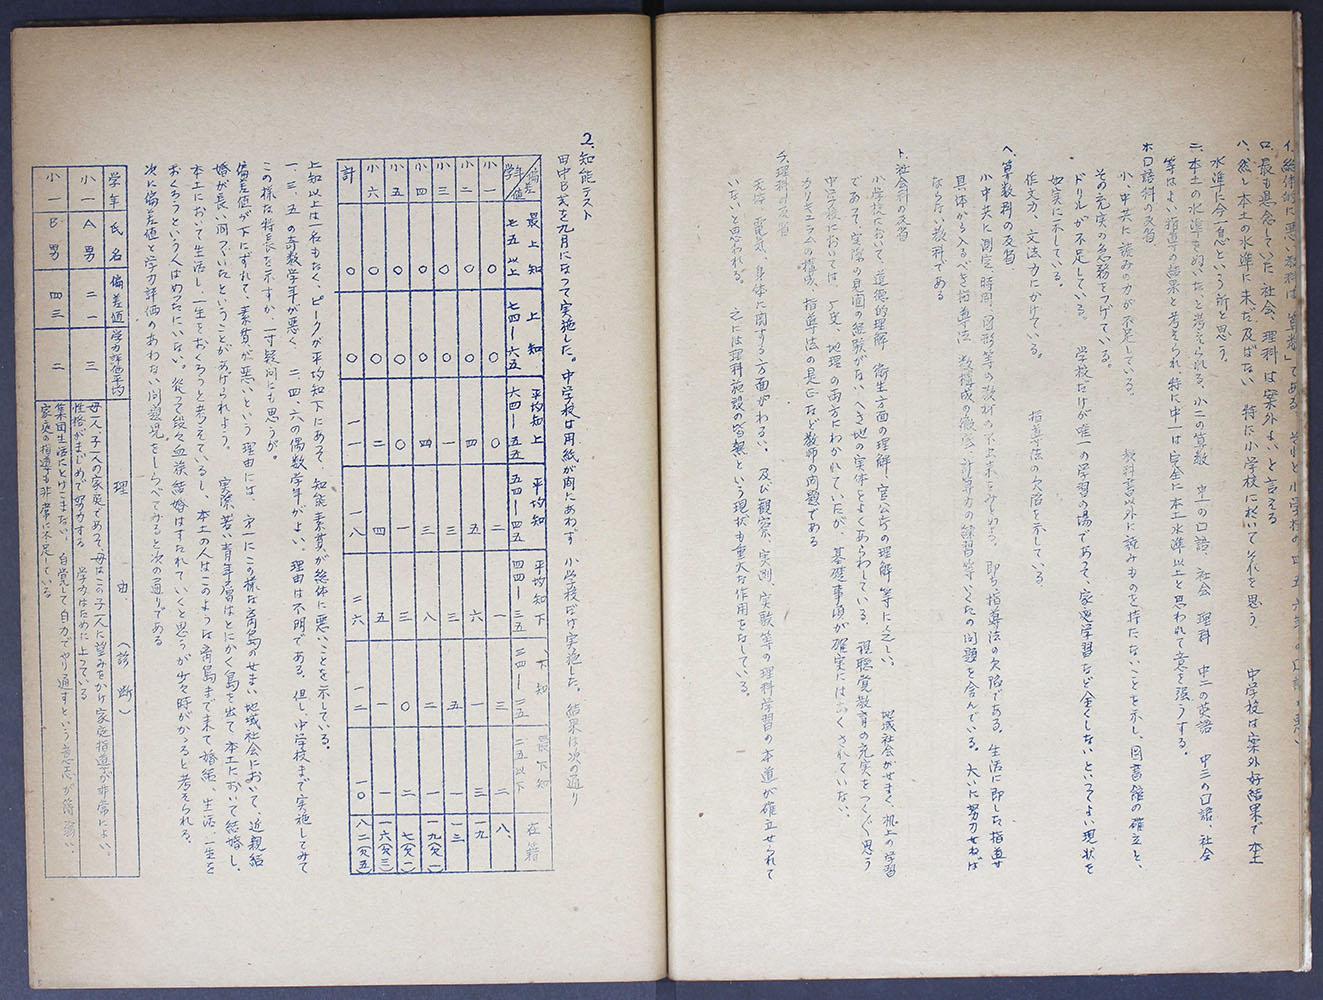 イ、総体的に悪い教科は「算数」である
ロ、最も懸念していた社会、理科は案外よいと言える
ハ、然し本土の水準に未だ及ばない 特に小学校に於いてそれを思う 中学校は案外好結果で本土
水準に今一息という所と思う。
ニ、本土の水準を 小二の算数 中一の口語、社会 理科 中二の英語 中三の口語、社会
等はよい指導の結果と考えられ、特に中一は完全に本土水準以上と思われて意を強うする。
ホ、口語科の反省
小、中共に読みの力が不足している。 教科書以外に読みものを持たないことを示し、図書館の確立と、
その充実の急務をつげている。
ドリルが不足している。 学校だけが唯一の学習の場であって、家庭学習など全くしないといってよい現状を
如実に示している。
作文力、文法力にかけている。 指導法の欠陥を示している
ヘ、算数科の反省
小中共に測定、時間、図形等の教材の 即ち指導法の欠陥である。生活に即した指導
具体から入るべき指導法 計算力の練習等いくたの問題を含んでいる。大いに努力せねば
ならない教科である
ト、社会科の反省
小学校において、道徳的理解、衛生方面の理解、官公庁の理解等に乏しい。 地域社会がせまく、机上の学習
であって実際の見聞の経験がないへき地の実体をよくあらわしている。 視聴覚教育の充実をつくづく思う
中学校においては、歴史、地理の両方にわかれていたが、基礎事項が確実には されていない、
カリキュラムの構成、指導法の是正など教師の問題である
チ、理科の反省
天体、電気、身体に関する方面がわるい、及び観察、実測、実験等の理科学習の本道が確立せられて
いないと思われる。 之には理科施設の皆無という現状も重大な作用をなしている。
2、知能テスト
田中B式を九月になって実施した。中学校は用紙が間にあわず 小学校だけ実施した。 結果は次の通り
偏差値 学年 最上知 七五以上 上知 七四ー六五 平均知上 六四ー五五 平均知 五四ー四五 平均知下 四四ー三五 下知 三四ー二五 最下知 二五以下 在籍
小一 〇 〇 〇 二 一 三 二 八、
小二 〇 〇 四 五 六 一 三 一九
小三 〇 〇 一 三 三 五 一 一三
小四 〇 〇 四 三 八 二 一 一九(欠一)
小五 〇 〇 〇 一 三 〇 二 七(欠一)
小六 〇 〇 二 四 五 一 一 一六(欠三)
計 〇 〇 一一 一八 二六 一二 一〇 八二(欠五)
上知以上は一名もなく、ピークが平均知下にあって、知能素質が総体に悪いことを示している。
一、三、五の奇数学年が悪く 二、四、六の偶数学年がよい。理由は不明である。但し、中学校まで実施してみて
この様な特長を示すか、一寸疑問にも思うが。
偏差値が下にずれて、素質が悪いという理由には、第一にこの様な離島のせまい地域社会において、近親結
婚が長い間つづいたということがあげられよう。 実際若い青年層はとにかく島を出て本土において結婚し、
本土において生活し、一生をおくろうと考えているし、本土の人はこのような離島まで来て婚姻、生活、一生を
おくろうという人はめったにいない。従って段々血族結婚はすたれていくと思うが少々時がかゝると考えられる。
次に偏差値と学力評価のあわない問題児をしらべてみると次の通りである
学年 氏名 偏差値 学力評価平均 理由(診断)
小一 A男 二一 三 母一人、子一人の家庭であって、母はこの子一人に望みをかけ家庭指導が非常によい、
性格がまじめで努力する 学力はために上っている
小一 B男 四三 二 集団生活にとけこまない、自覚して自力でやり通すという意志が薄弱い、
家庭の指導も非常に不足している